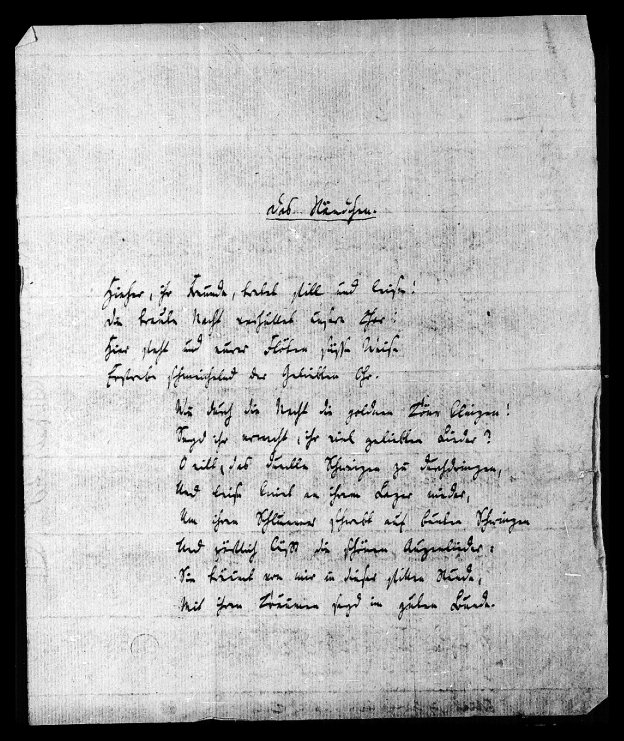 Das Ständchen.
Hieher, ihr Freunde, tretet still und leise!
Die traute Nacht verhüllet unsern Chor:
Hier steht und eurer Flöten süsse Weise
Erstrebe schmeichelnd der Geliebten Ohr.
Wie durch die Nacht die goldnen Töne klingen!
Seyd ihr erwacht, ihr viel geliebten Lieder?
O eilt, das dunkle Schweigen zu durchdringen,
Und leise kniet an ihrem Lager nieder,
Um ihren Schlummer schwebt auf bunten Schwingen
Und zärtlich küßt die schönen Augenlieder:
Sie träumt von mir in dieser stillen Stunde,
Mit ihren Träumen seyd im guten Bunde.